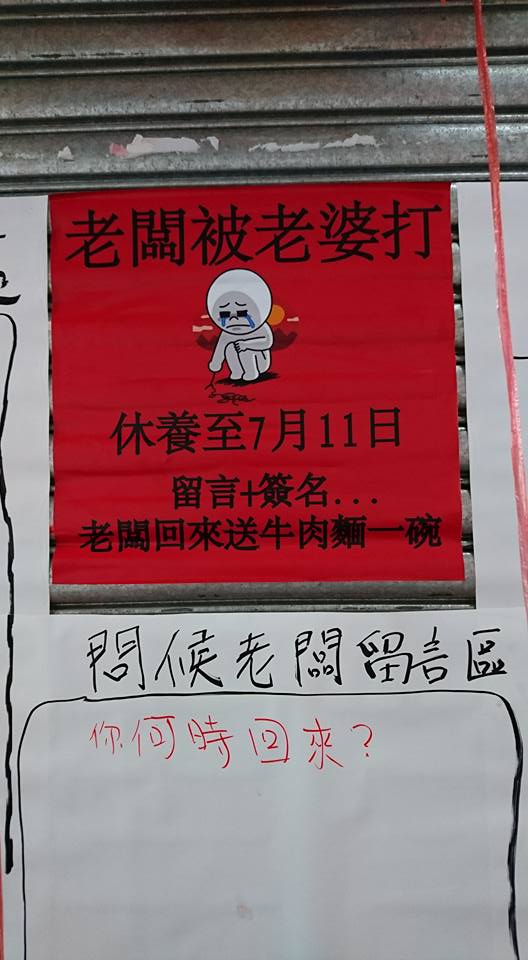 老闆被老婆打
休養至7月11日
留言+簽名...
老闆回來送牛肉麵一碗
問候老闆留言區
你何時回來?